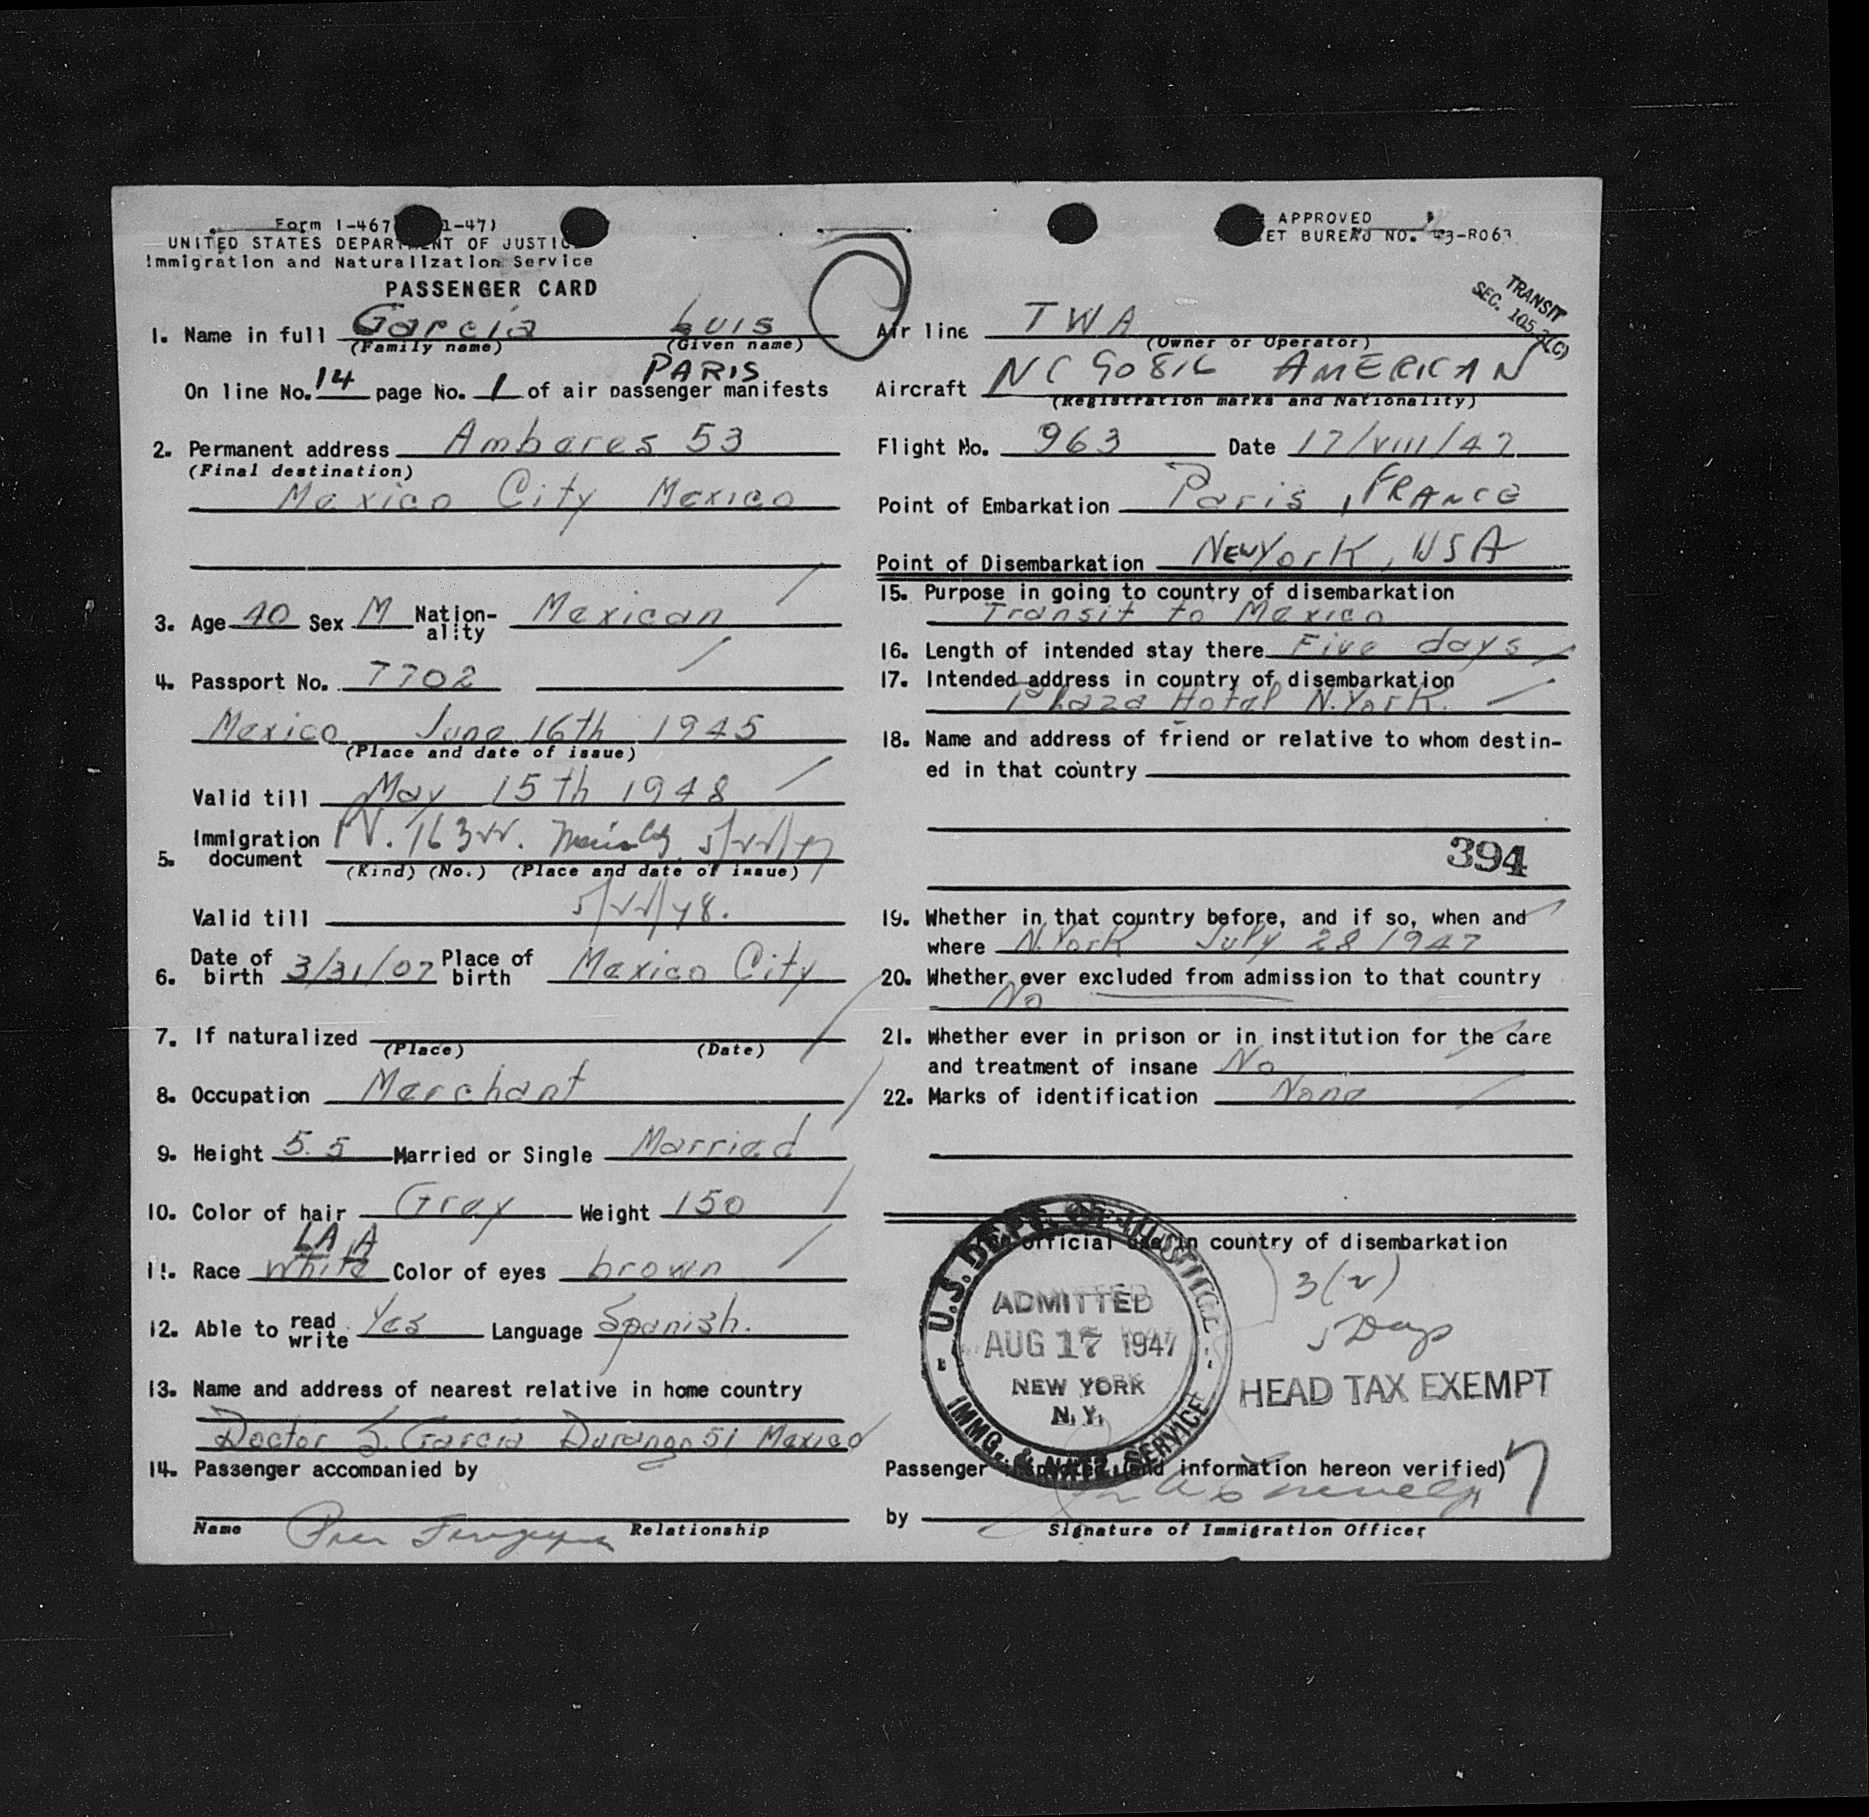 Form I-467 1-47)
UNITED STATES DEPARTMENT OF JUSTICE
Immigration and Naturalization Service
PASSENGER CARD
1. Name in full Garcia Luis
(Family name) (Given name)
PARIS
On line No. 14 page No. 1 of air passenger manifests
2. Permanent address Amberes 53
(Final destination)
Mexico City Mexico
3. Age 40 Sex M Nation-ality Mexican
4. Passport No. 7702
Mexico June 16th 1945
(Place and date of issue)
Valid till May 15th 1948
5. Immigration document
(Kind) (No.) (Place and date of issue)
Valid till
6. Date of birth 3/31/07 Place of birth Mexico City
7. If naturalized
(Place) (Date)
8. Occupation Merchant
9. Height 5.5 Married or Single Married
10. Color of hair Gray Weight 150
11. Race White Color of eyes brown
12. Able to read write Yes Language Spanish.
13. Name and address of nearest relative in home country
Doctor S. Garcia Durango 51 Mexico
14. Passenger accompanied by
Name Relationship
APPROVED
BUREAU NO. 43-R063
TRANSIT
SEC. 105.3(C)
Air line TWA
(Owner or Operator)
Aircraft AMERICAN
(Registration marks and Nationality)
Flight No. 963 Date 17/VIII/47
Point of Embarkation Paris, FRANCE
Point of Disembarkation New York, USA
15. Purpose in going to country of disembarkation
Transit to Mexico
16. Length of intended stay there Five days
17. Intended address in country of disembarkation
Plaza Hotel N.York.
18. Name and address of friend or relative to whom destin-
ed in that country
394
19. Whether in that country before, and if so, when and
where N.York July 28 1947
20. Whether ever excluded from admission to that country
No
21. Whether ever in prison or in institution for the care
and treatment of insane No
22. Marks of identification None
official use in country of disembarkation
U.S. DEPT. OF JUSTICE
ADMITTED
AUG 17 1947
NEW YORK
N.Y.
IMMG. & NATZ. SERVICE
5 Days
HEAD TAX EXEMPT
Passenger inspected (and information hereon verified)
by
Signature of Immigration Officer